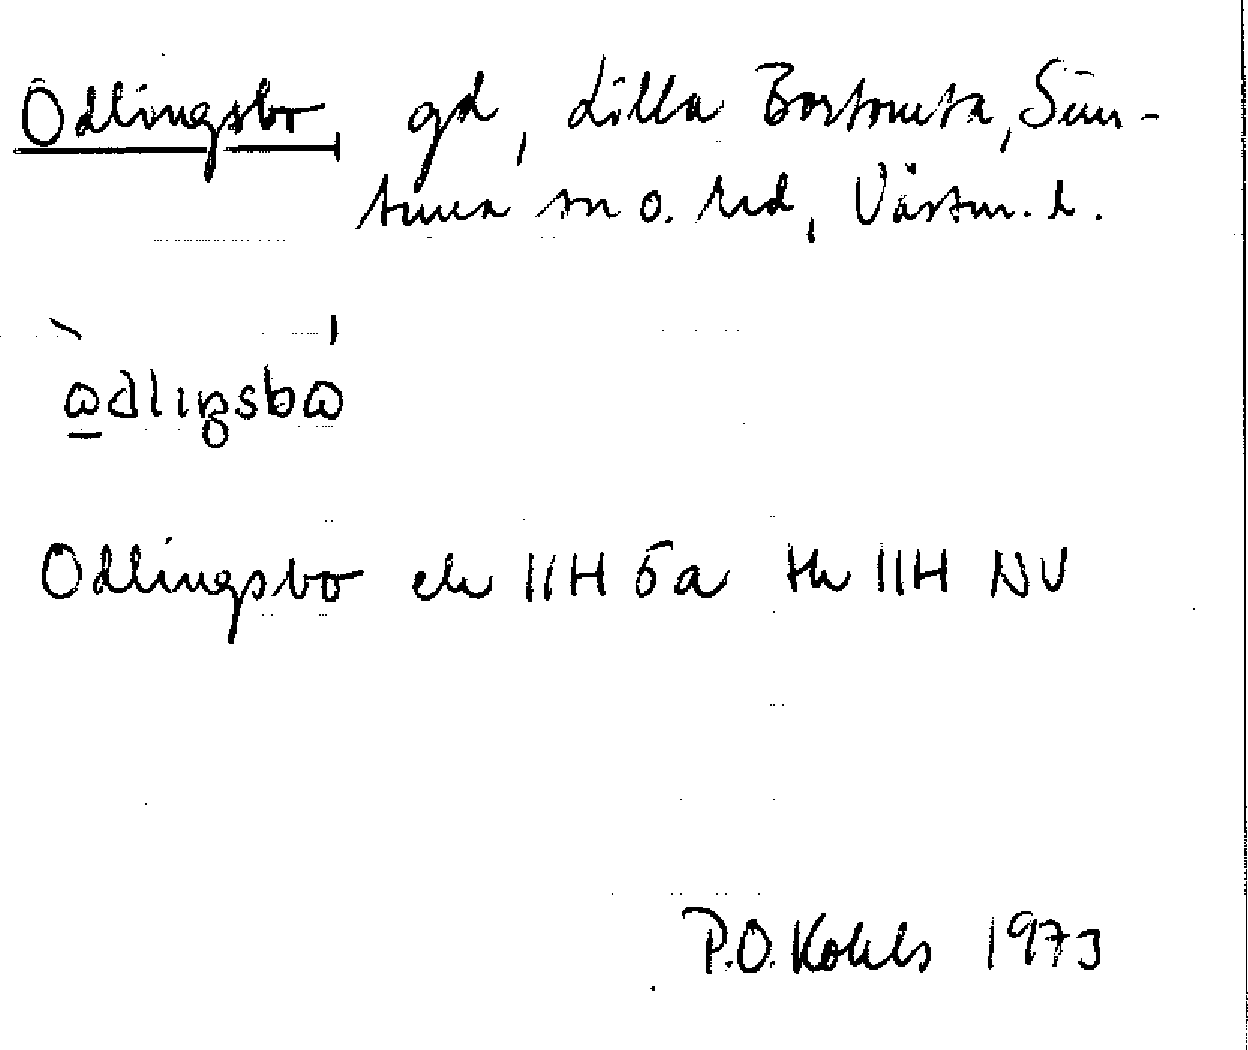 Odlingsbo, gd, Lilla Bortomta, Sim-
tuna sn o. hd, Västm. l.
ωdlıŋsbω
Odlingsbo ek 11H 5a tk 11H NV
P.O. Kohls 1973